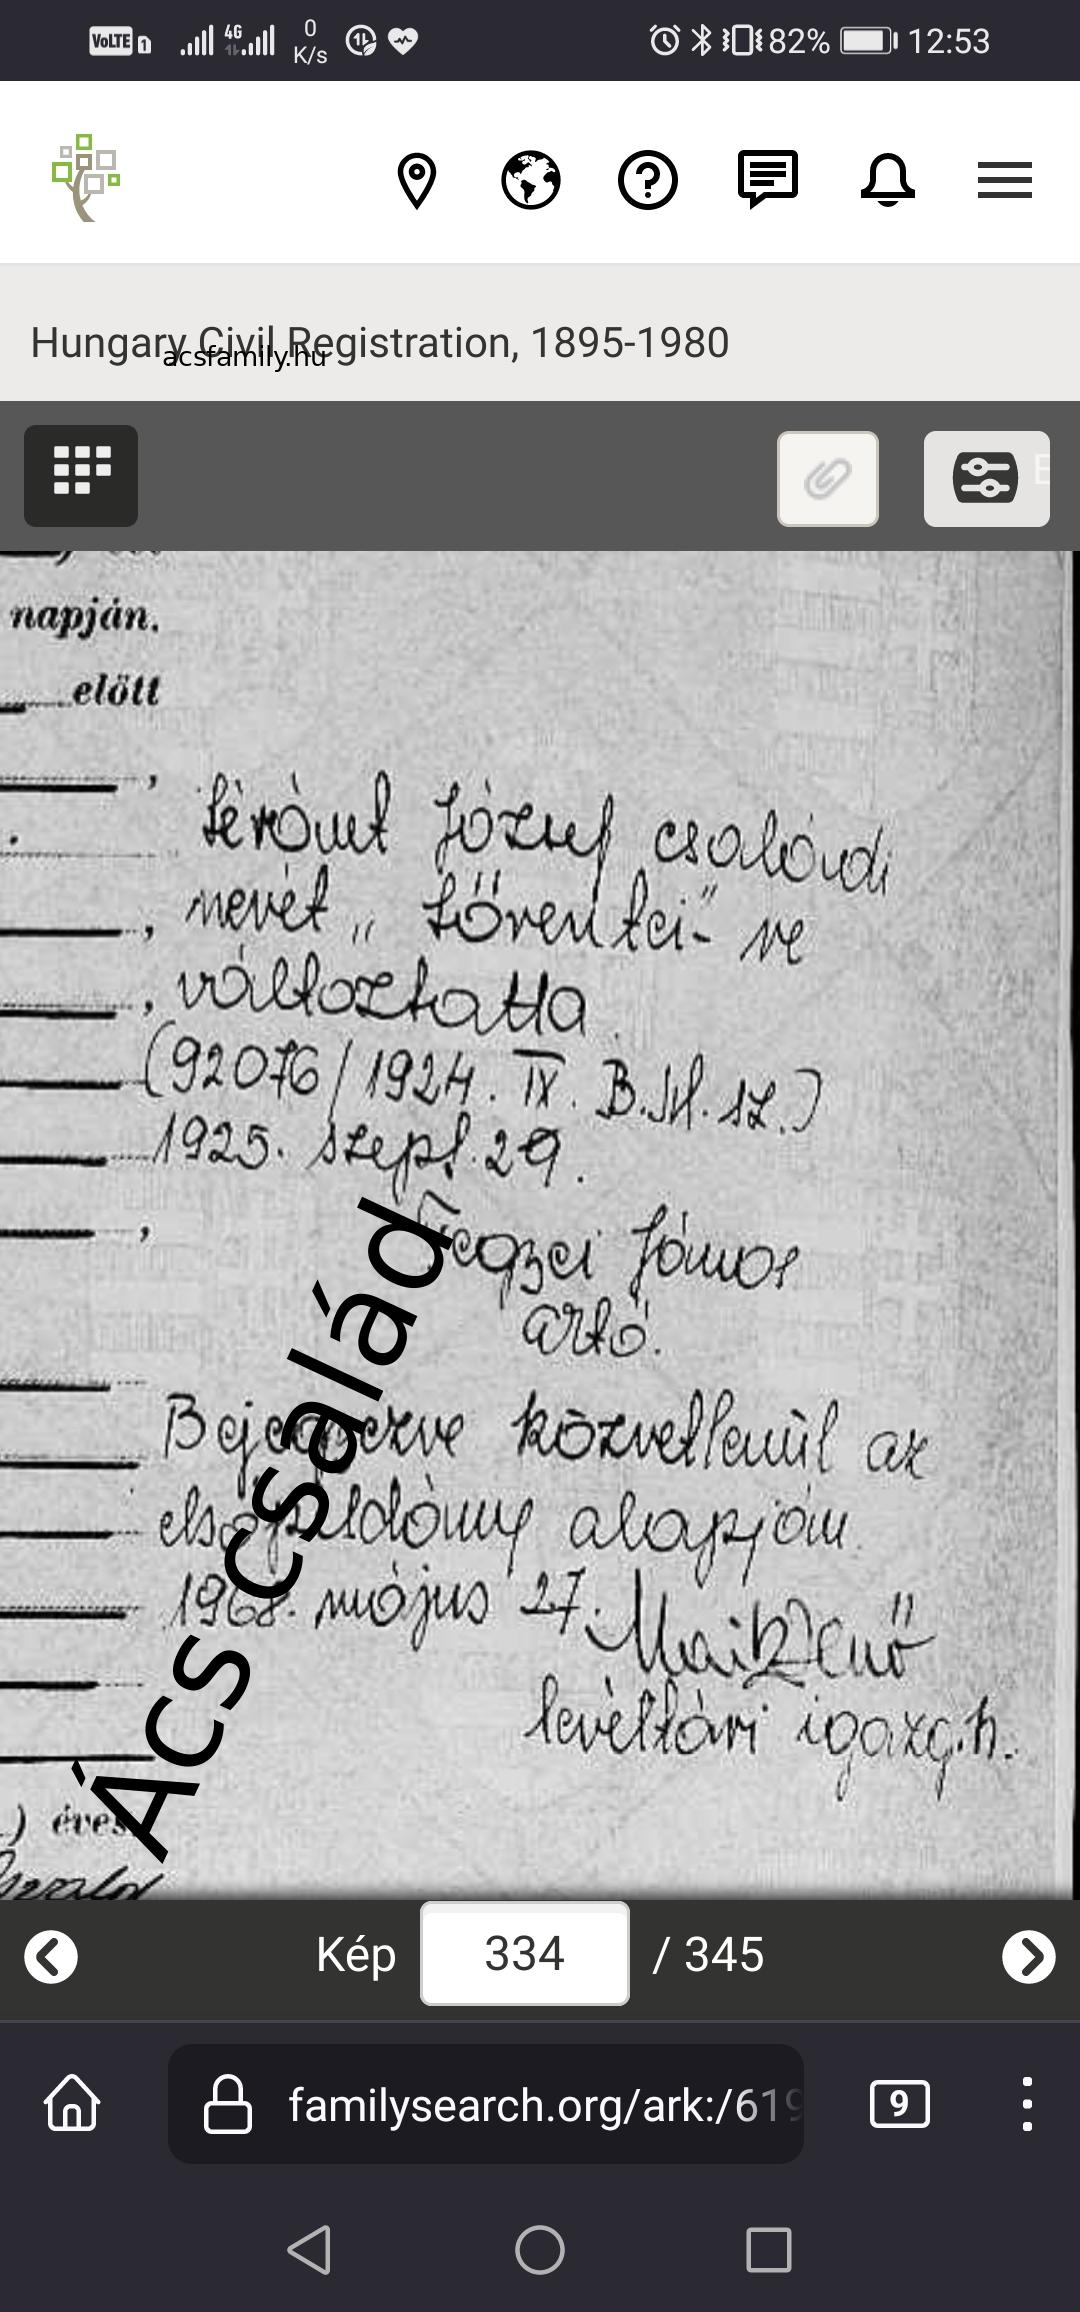 VoLTE 1 4G 0 K/s 82% 12:53
Hungary Civil Registration, 1895-1980
acsfamily.hu
napján.
előtt
József családi
nevét „Lőrentei"- re
változtatta
(92076/1924. IX. B.M. sz.)
1925. szept. 29.
János
Bejegyezve közvetlenül az
első példány alapján.
1968. május 27. Jenő
levéltári igazg.h.
Ács család
) éves
Kép 334 / 345
familysearch.org/ark:/619
9